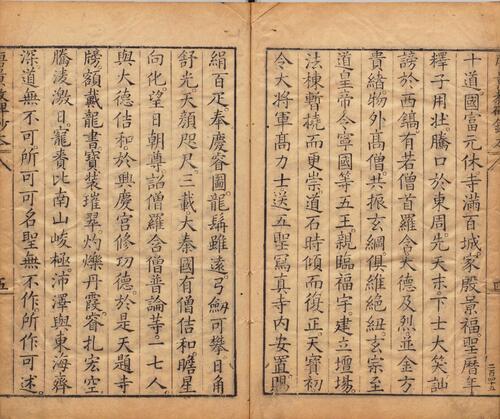 十道。國富元休。寺滿百城。家殷景福。聖曆年
釋子用壯。騰口於東周。先天末下士大笑。訕
謗於西鎬。有若僧首羅含。大德及烈。並金方
貴緒。物外高僧。共振玄綱。俱維絕紐。玄宗至
道皇帝。令寧國等五王。親臨福宇。建立壇場。
法棟暫橈而更崇。道石時傾而復正。天寶初
令大將軍高力士。送五聖寫真寺內安置。賜
絹百疋。奉慶睿圖。龍髯雖遠。弓劍可攀。日角
舒光。天顏咫尺。三載大秦國有僧佶和。瞻星
向化。望日朝尊。詔僧羅含。僧普論等。一七人。
與大德佶和。於興慶宮修功德。於是天題寺
牓。額載龍書。寶裝璀翠。灼爍丹霞。睿札宏空。
騰淩激日。寵賚比南山峻極。沛澤與東海齊
深。道無不可。所可可名。聖無不作。所作可述。
五